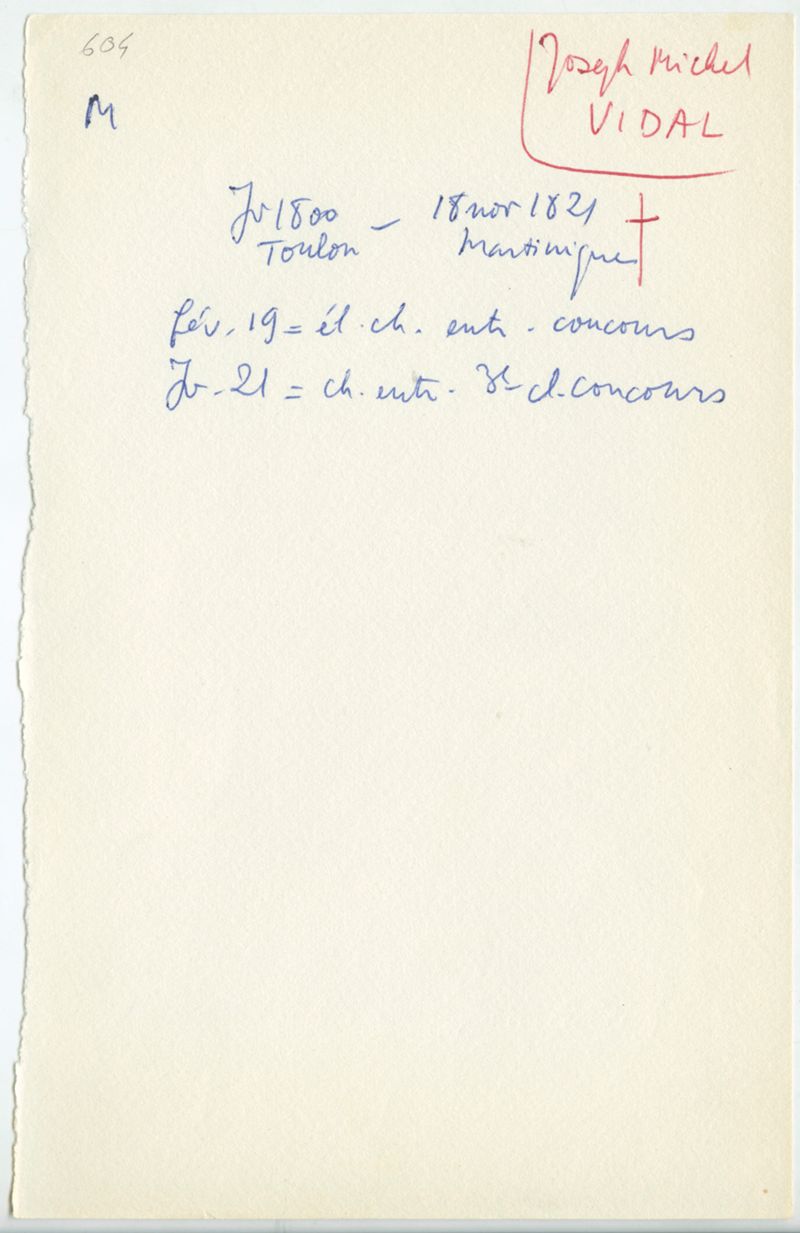 604
Joseph Michel
VIDAL
M
Jr 1800 — 18 nov 1821 †
Toulon Martinique
fév. 19 = él. ch. entr. concours
Jr. 21 = ch. entr. 3e cl. concours